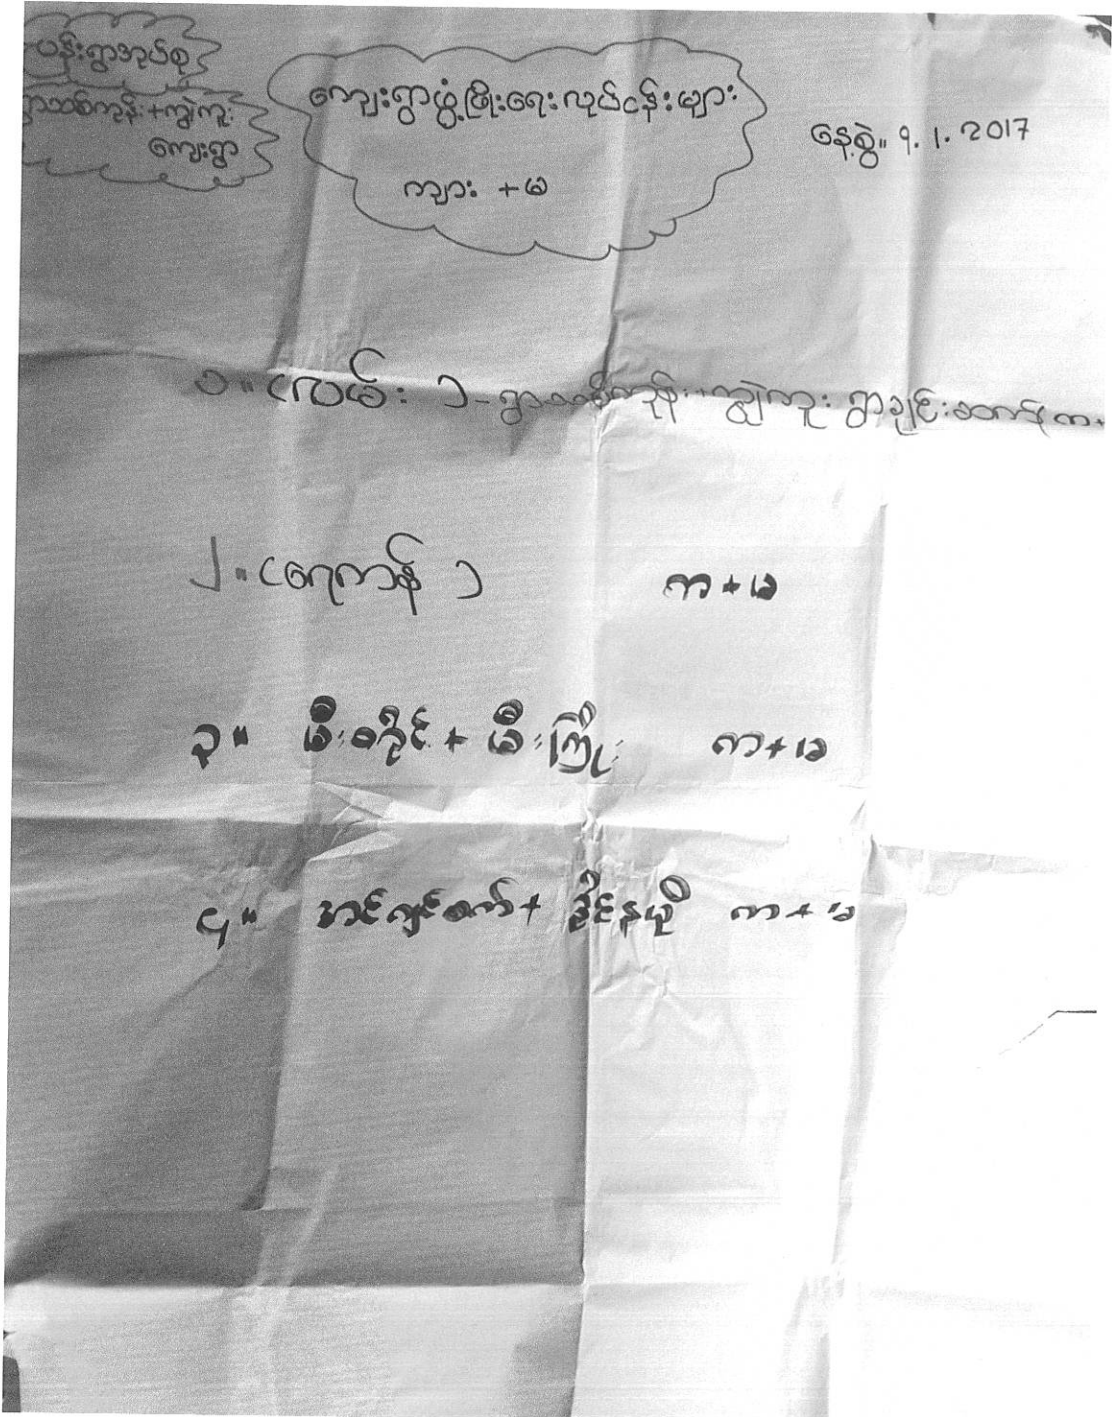 ပန်းရွာအုပ်စု
ရွာသစ်ကုန်း+ကျွဲကူး
ကျေးရွာ
ကျေးရွာဖွံ့ဖြိုးရေးလုပ်ငန်းများ
ကျား + မ
နေ့စွဲ။ 9. 1. 2017
၁။ (လမ်း) - ရွာသစ်ကုန်း+ကျွဲကူး ရွာချင်းဆက် (က+
၂။ (ရေကန်) က+မ
၃။ မီးစက်တိုင် + မီးကြိုး က+မ
၄။ အင်ဂျင်စက်+ ဒိုင်နမို က+မ